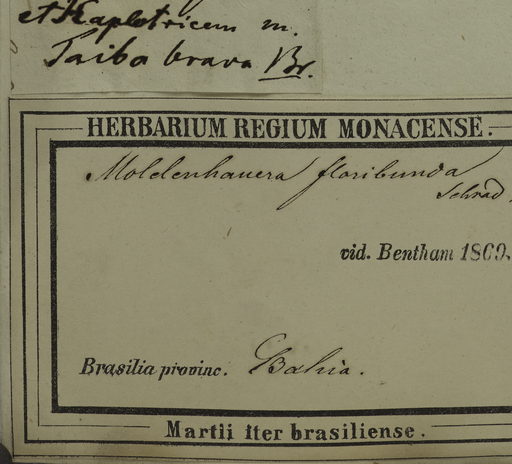 et Haplotricum m.
Taibo brava Br.
HERBARIUM REGIUM MONACENSE.
Moldenhauera floribunda
Schrad.
vid. Bentham 1869.
Brasilia provinc. Bahia.
Martii iter brasiliense.